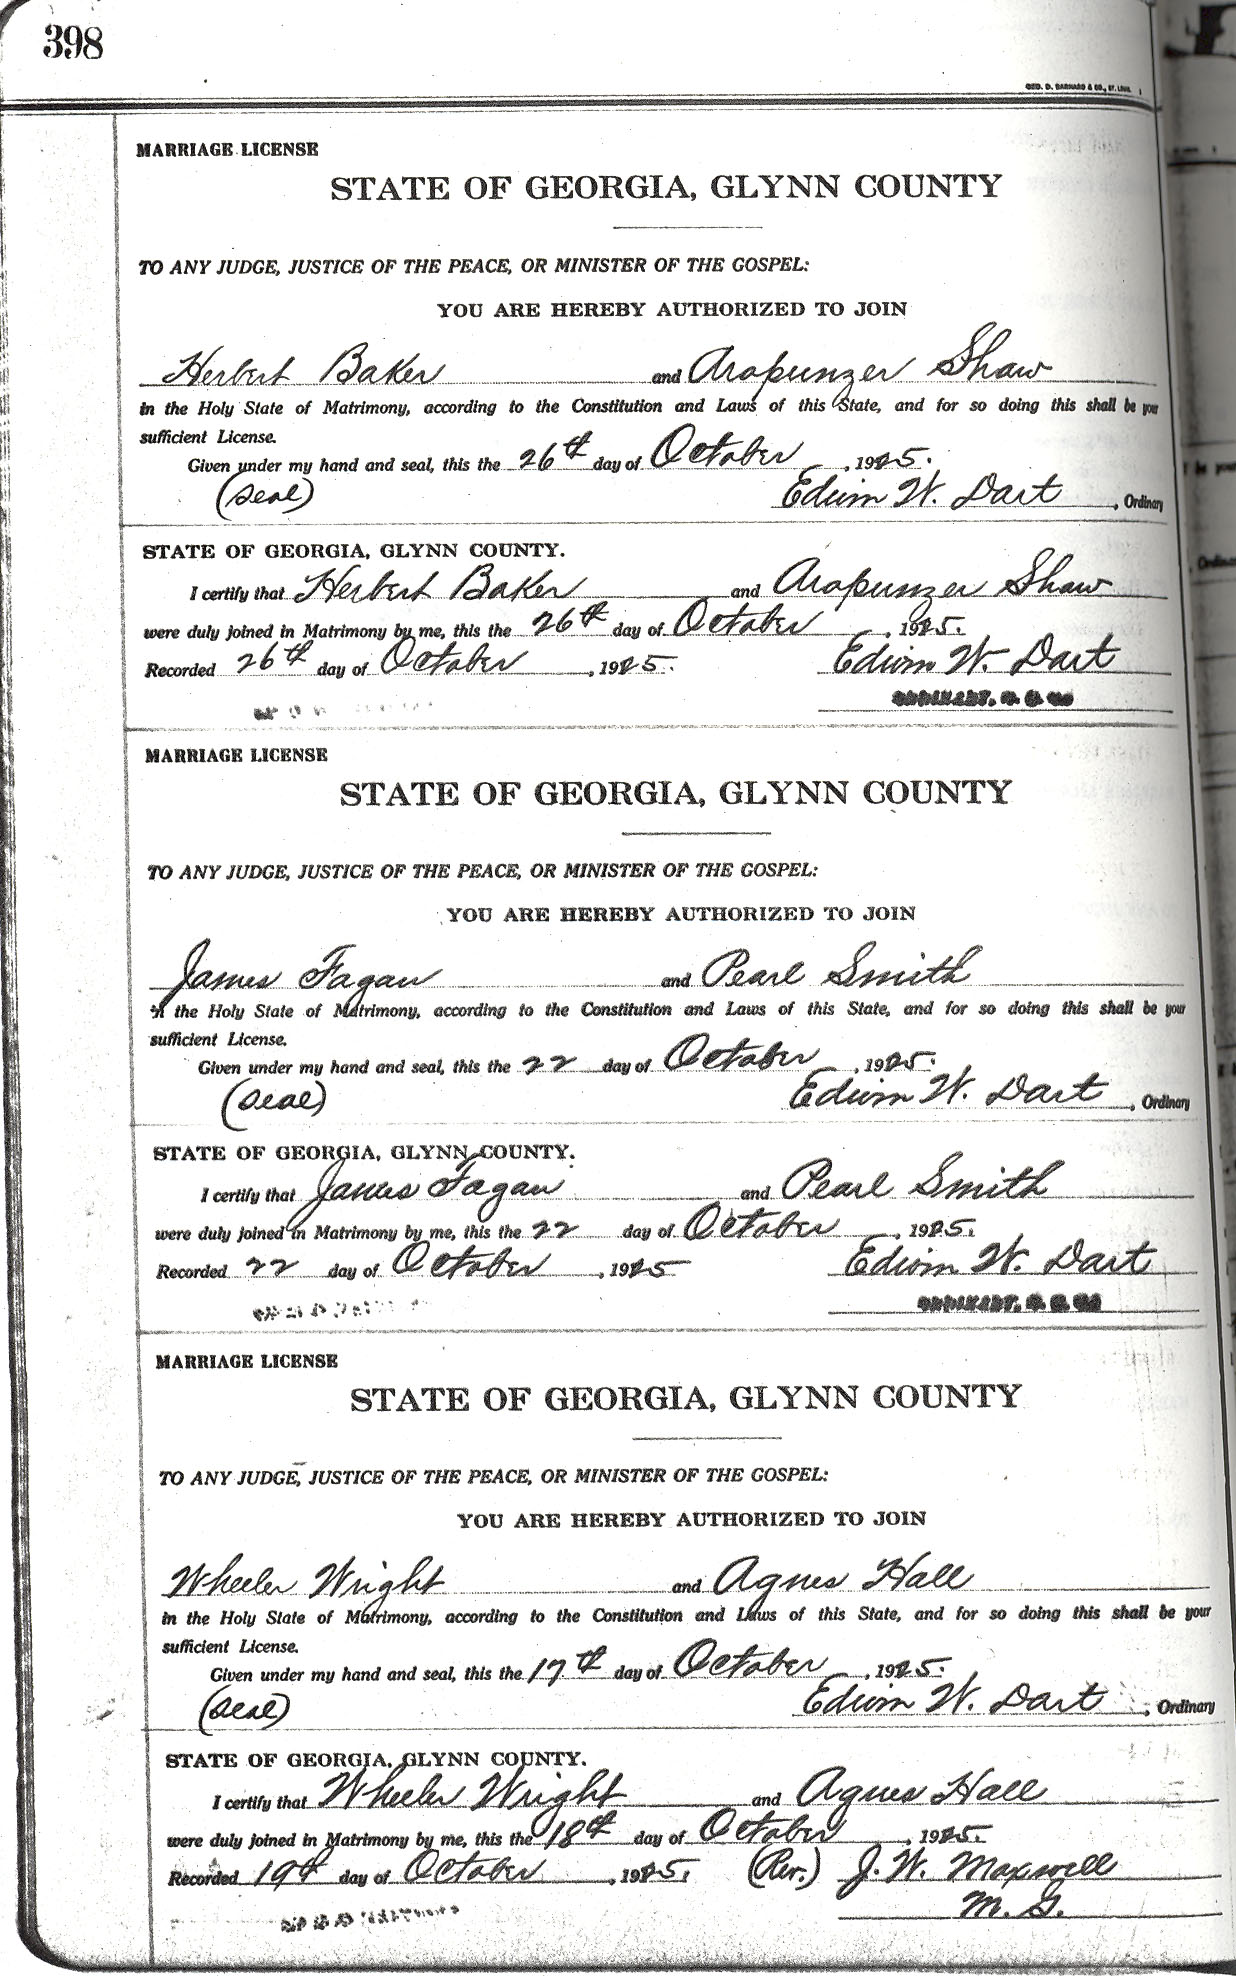 398
GEO. D. BARNARD & CO., ST. LOUIS
MARRIAGE LICENSE
STATE OF GEORGIA, GLYNN COUNTY
TO ANY JUDGE, JUSTICE OF THE PEACE, OR MINISTER OF THE GOSPEL:
YOU ARE HEREBY AUTHORIZED TO JOIN
Herbert Baker and Arapunzer Shaw
in the Holy State of Matrimony, according to the Constitution and Laws of this State, and for so doing this shall be your
sufficient License.
Given under my hand and seal, this the 26th day of October, 1925.
(Seal) Edwin W. Dart, Ordinary
STATE OF GEORGIA, GLYNN COUNTY.
I certify that Herbert Baker and Arapunzer Shaw
were duly joined in Matrimony by me, this the 26th day of October, 1925.
Recorded 26th day of October, 1925. Edwin W. Dart
MARRIAGE LICENSE
STATE OF GEORGIA, GLYNN COUNTY
TO ANY JUDGE, JUSTICE OF THE PEACE, OR MINISTER OF THE GOSPEL:
YOU ARE HEREBY AUTHORIZED TO JOIN
James Fagan and Pearl Smith
in the Holy State of Matrimony, according to the Constitution and Laws of this State, and for so doing this shall be your
sufficient License.
Given under my hand and seal, this the 22 day of October, 1925.
(Seal) Edwin W. Dart, Ordinary
STATE OF GEORGIA, GLYNN COUNTY.
I certify that James Fagan and Pearl Smith
were duly joined in Matrimony by me, this the 22 day of October, 1925.
Recorded 22 day of October, 1925 Edwin W. Dart
MARRIAGE LICENSE
STATE OF GEORGIA, GLYNN COUNTY
TO ANY JUDGE, JUSTICE OF THE PEACE, OR MINISTER OF THE GOSPEL:
YOU ARE HEREBY AUTHORIZED TO JOIN
Wheeler Wright and Agnes Hall
in the Holy State of Matrimony, according to the Constitution and Laws of this State, and for so doing this shall be your
sufficient License.
Given under my hand and seal, this the 17th day of October, 1925.
(Seal) Edwin W. Dart, Ordinary
STATE OF GEORGIA, GLYNN COUNTY.
I certify that Wheeler Wright and Agnes Hall
were duly joined in Matrimony by me, this the 18th day of October, 1925.
Recorded 19th day of October, 1925. (Rev.) J. W. Maxwell
M. G.